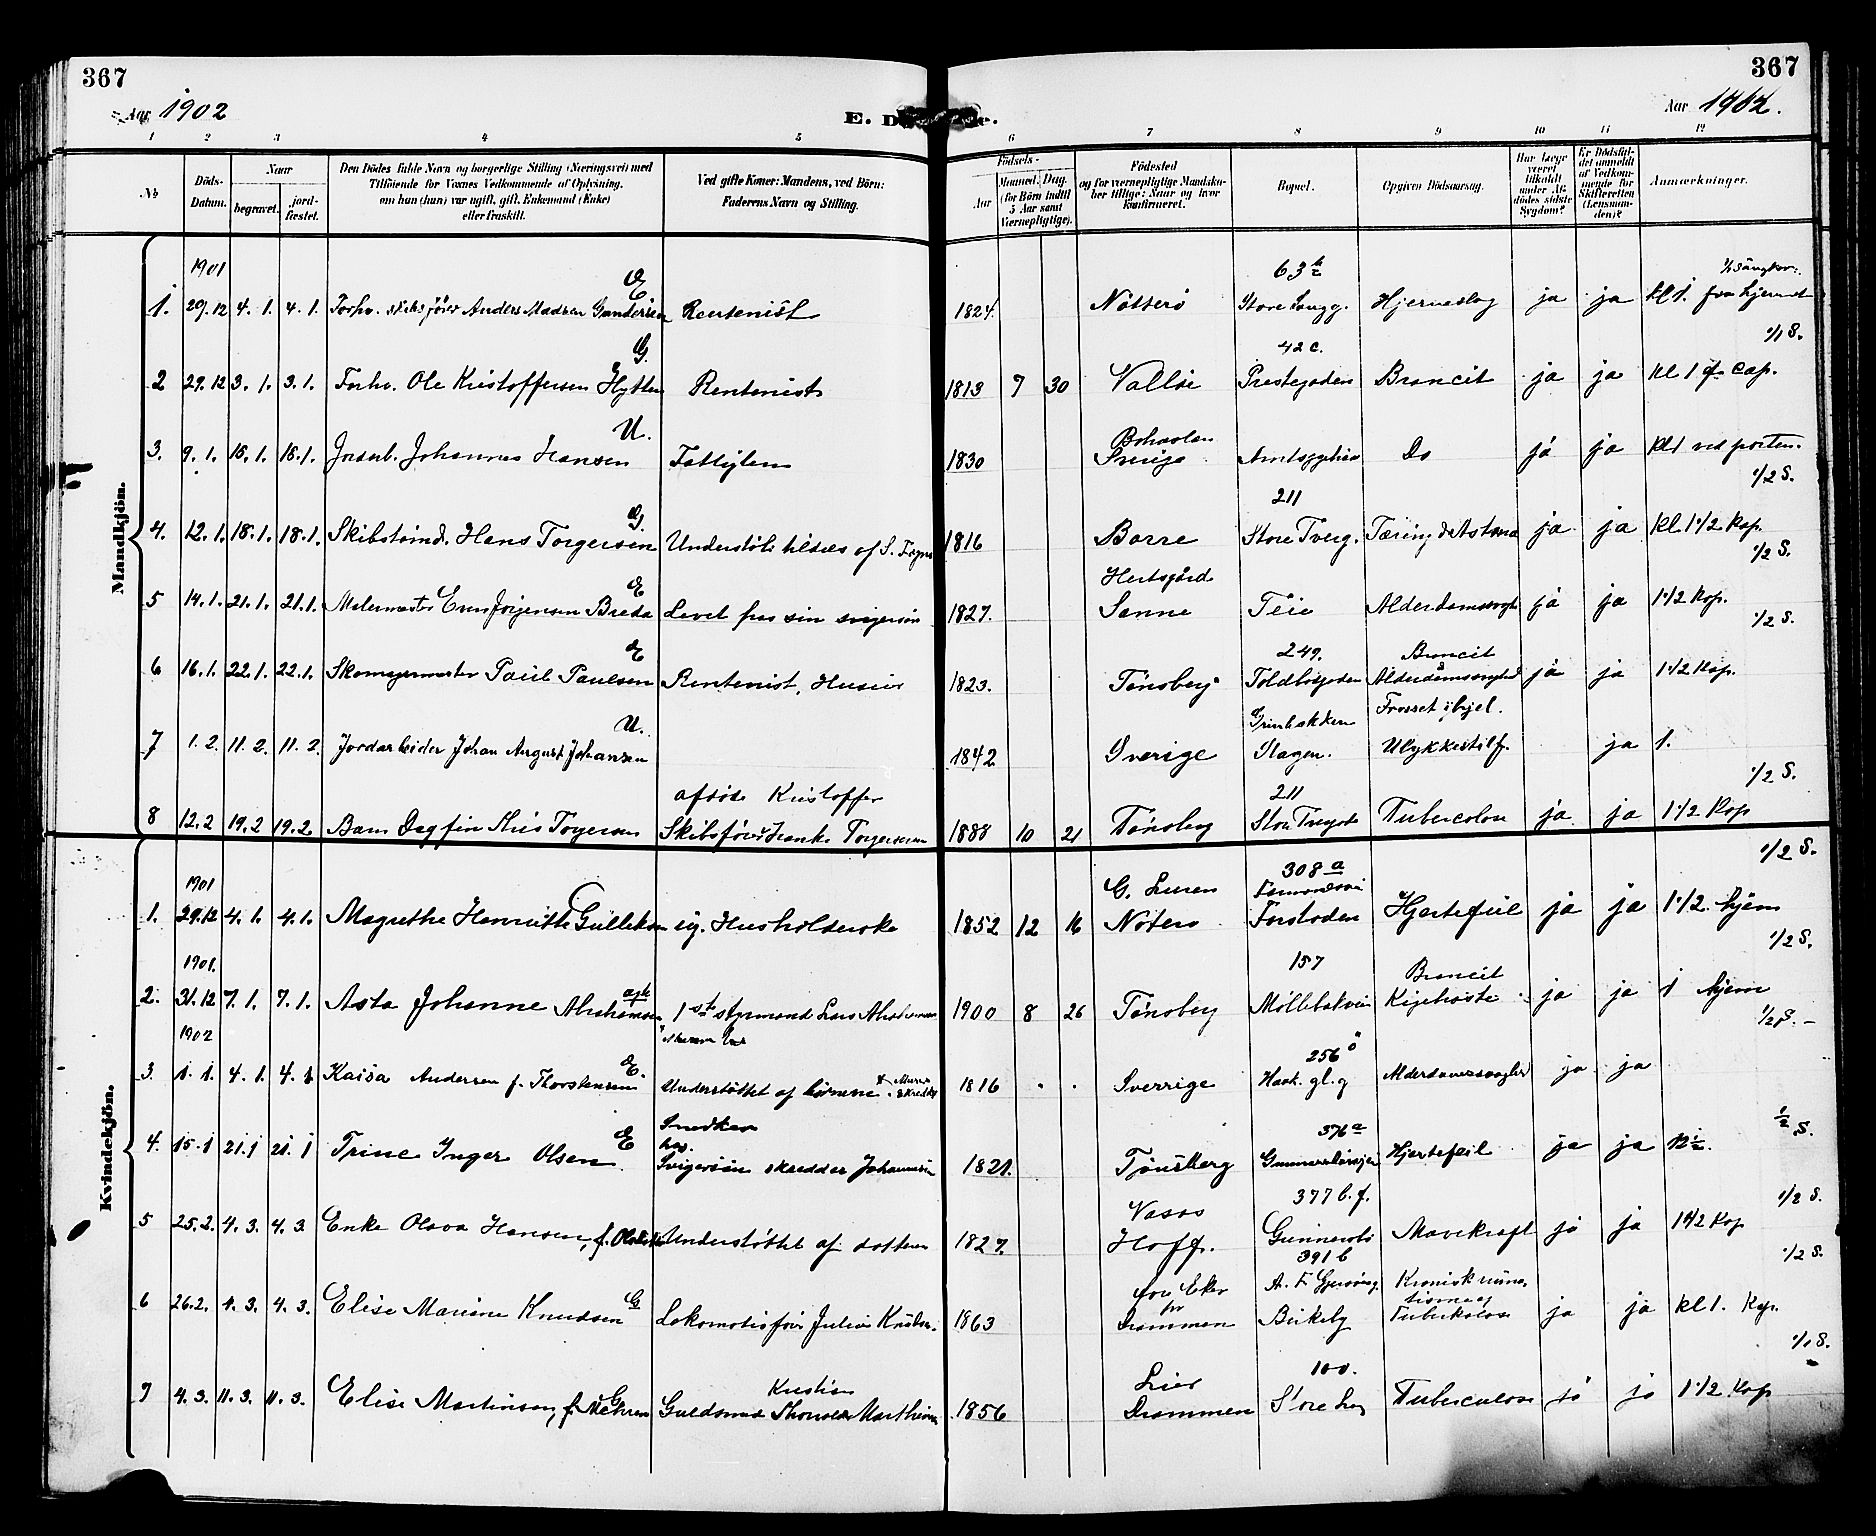 367
367
Aar 1902
E. D
Aar 1902.
1 2 3 4 5 6 7 8 9 10 11 12
No
Döds-Datum.
Naar
begravet.
jordfæstet.
Den Dödes fulde Navn og borgerlige Stilling (Næringsvei) med
Tilföiende for Voxnes Vedkommende af Oplysning,
om han (hun) var ugift, gift, Enkemand (Enke)
eller fraskilt.
Ved gifte Koner: Mandens, ved Börn:
Faderens Navn og Stilling.
Födsels-
Aar
Maaned. Dag.
(for Börn indtil
5 Aar samt
Værnepligtige).
Födested
og for værnepligtige Mandskaber tillige: Naar og hvor
konfirmeret.
Bopæl.
Opgiven Dödsaarsag.
Har Læge
været
tilkaldt
under Afdödes sidste
Sygdom?
Er Dödsfaldet anmeldt
af Vedkommende for
Skifteretten
(Lensmanden)?
Anmærkninger.
Mandkjön.
1901 E 63
1. 29.12 4. 1. 4. 1. Forhv. skibsfører Anders Madsen Gundersen Rentenist 1824. Nötterö Store Langg. Hjerneslag ja ja kl 1. fra hjemmet
G. 42 c. 1/1 S.
2 29.12 3. 1. 3. 1. Forhv. Ole Kristoffersen Hytten Rentenist 1813 7 30 Valløe Prestegaden Broncit ja ja kl 1 f. Cap.
U.
3. 9. 1. 16. 1. 16. 1. Jordarb. Johannes Hansen Fattiglem 1830 Sverige Do ja ja kl 1 ved porten.
G. 211 1/2 S.
4. 12. 1. 18. 1. 18. 1. Skibstømd. Hans Torgersen Understøt 1816 Borre Store Tverg. Tæring & Astma ja ja kl. 1 1/2 Kap.
E 1/2 S.
5 14. 1. 21. 1. 21. 1. Malermester Even Jørgensen Breda Levet hos sin svigersøn 1827. Sanne Teie ja ja 1 1/2 Kap.
E 249. Broncit 1/2 S.
6 16. 1. 22. 1. 22. 1. Skomagermester Paul Paulsen Rentenist, Huseier 1823. Tønsberg Toldbodgaden ja ja 1 1/2 Kap.
U. Grinbakken Frosset ihjel.
7 1. 2. 11. 2. 11. 2. Jordarbeider Johan August Johansen 1842 Sverige Slagen. Ulykkestilf. ja 1.
afdøde Kristoffer 211 1/2 S.
8 12. 2 19. 2 19. 2. Barn Dagfin Thris Torgersen Skibsfører Torgersen 1888 10 21 Tønsberg Tubercolose ja ja 1 1/2 Kap
Kvindekjön.
1901 308 a 1/2 S.
1. 29.12 4. 1. 4. 1. Magrethe Henriette Gulliksen ug. Husholderske 1852 12 16 Nøterø Hjertefeil ja ja 1 1/2. hjem
1901. 157 Broncit 1/2 S.
2. 31.12 7. 1. 7. 1. Asta Johanne Abrahamsen 1ste styrmand Lars Abrahamsen 1900 8 26 Tønsberg Møllebakvein Kighoste ja ja 1 hjem
1902 E. 256 1/2 S.
3. 1. 1. 4. 1. 4. 1 Kaisa Andersen f. Thorstensen Understøttet af børnene 1816 Sverrige Haak. gl. g Alderdomssvaghed ja ja
E Snedker hos 376 a 1/2 S.
4. 15. 1 21. 1 21. 1 Trine Inger Olsen Svigersøn skredder Johannessen 1821. Tønsberg Hjertefeil ja ja 12 1/2.
377 b. f. 1/2 S.
5 25. 2. 4. 3. 4. 3 Enke Olava Hansen, f. Understøttet af datteren 1827. Hoff. Gunnarsbø Mavekræft ja ja 1 1/2 Kap
G 391 b Kronisk 1/2 S.
6 26. 2. 4. 3. 4. 3. Elise Marine Knudsen Lokomotivfører Julius Knudsen. 1863 Drammen Birkeby Tuberkolose ja ja kl 1. Kap.
G Kristian Lier 100. 1/1 S.
7 4. 3. 11. 3. 11. 3. Elise Martinson, f. Mehren Guldsmed Martinsen 1856 Drammen Tuberculose ja ja 1 1/2 Kap